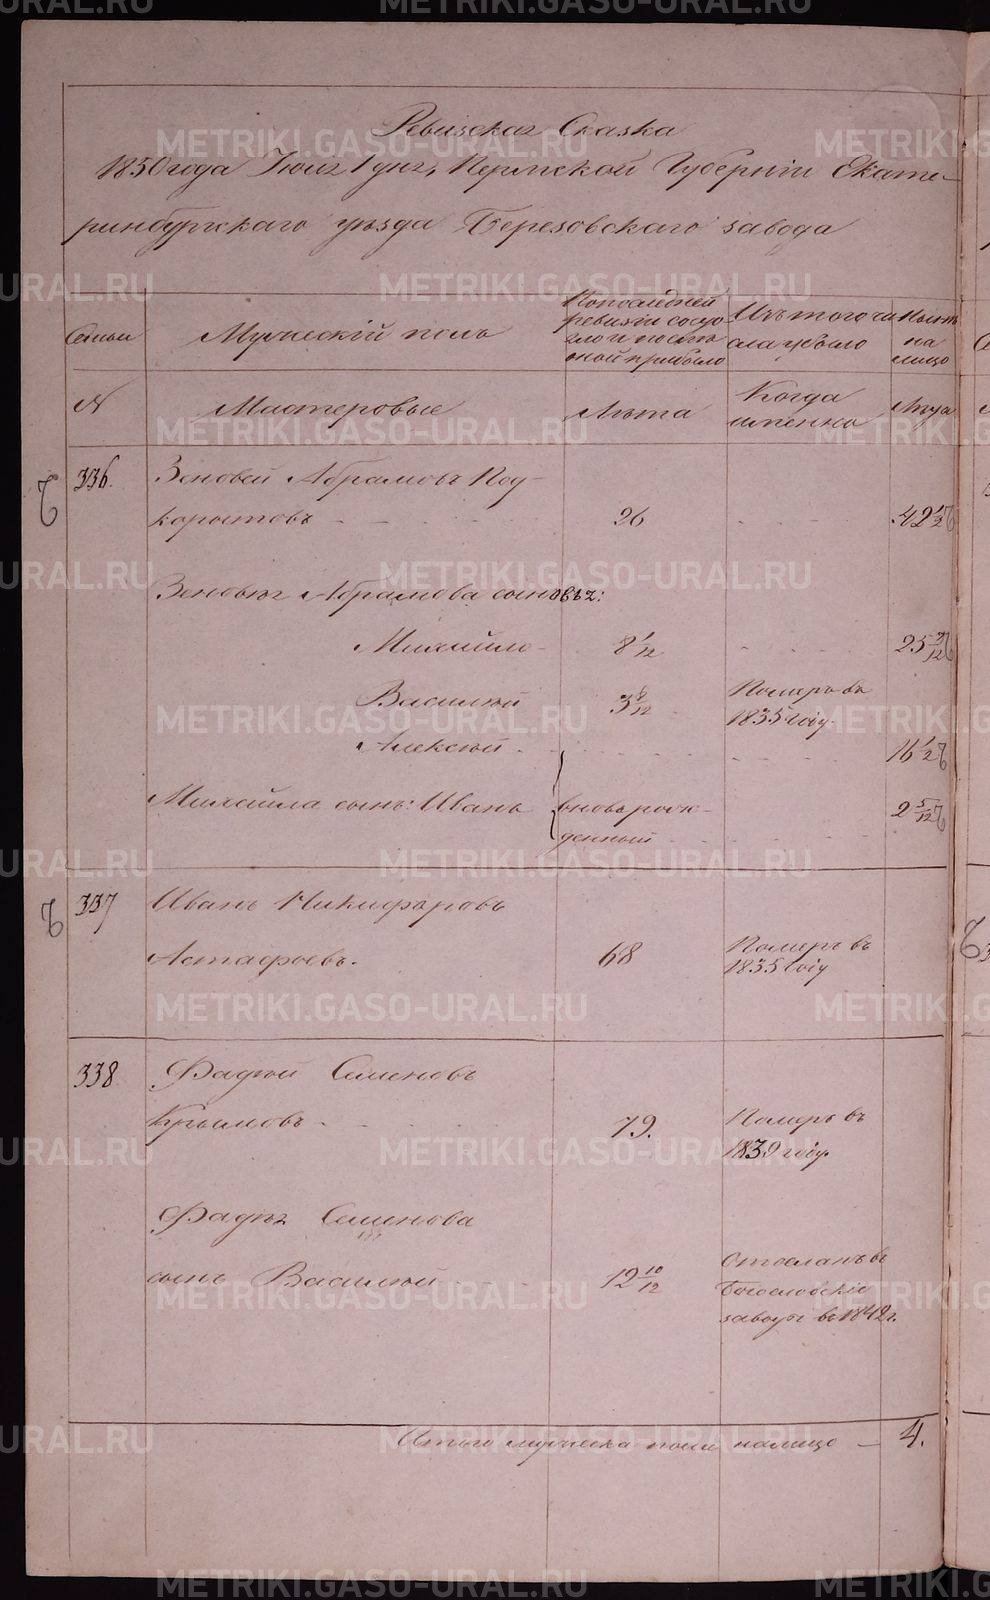 Ревизская Сказка
1850 года Іюля 1 дня, Пермской Губерніи Екате-
ринбургскаго уѣзда Березовскаго завода
Семьи
Мужескій полъ
По последней
ревизіи состо
яло и послѣ
оной прибыло
Изъ того чи
сла убыло
Нынѣ
на
лицо
№
Мастеровые
Лѣта
Когда
именно
Лѣта
336.
Зеновей Абрамовъ Под-
коростовъ
26
42 1/2
Зеновья Абрамова сыновья:
Михайло
8 1/12
25
Василей
3
Померъ въ
1835 году.
Алексей
16 1/2
Михаила сынъ: Иванъ
вновь рож-
денный
2 5/12
337
Иванъ Никифоровъ
Астафьевъ.
68
Померъ въ
1835 году
338
Фадѣй Семеновъ
Крымовъ
79.
Померъ въ
1839 году.
Фадѣя Семенова
сынъ Василей
12 10/12
Отосланъ въ
Богословскіе
заводы въ 1842 г.
Итого мужеска пола налицо
4.
METRIKI.GASO-URAL.RU